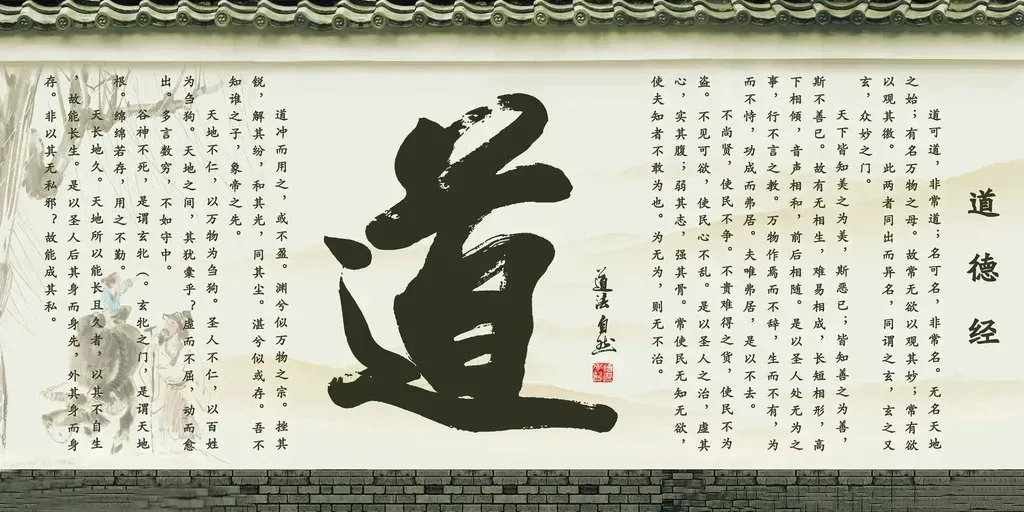 道德经
道可道，非常道；名可名，非常名。无名天地
之始；有名万物之母。故常无欲以观其妙；常有欲
以观其徼。此两者同出而异名，同谓之玄，玄之又
玄，众妙之门。
天下皆知美之为美，斯恶已；皆知善之为善，
斯不善已。故有无相生，难易相成，长短相形，高
下相倾，音声相和，前后相随。是以圣人处无为之
事，行不言之教。万物作焉而不辞，生而不有，为
而不恃，功成而弗居。夫唯弗居，是以不去。
不尚贤，使民不争。不贵难得之货，使民不为
盗。不见可欲，使民心不乱。是以圣人之治，虚其
心，实其腹；弱其志，强其骨。常使民无知无欲，
使夫知者不敢为也。为无为，则无不治。
道法自然
道
道冲而用之，或不盈。渊兮似万物之宗。挫其
锐，解其纷，和其光，同其尘。湛兮似或存。吾不
知谁之子，象帝之先。
天地不仁，以万物为刍狗。圣人不仁，以百姓
为刍狗。天地之间，其犹橐乎？虚而不屈，动而愈
出。多言数穷，不如守中。
谷神不死，是谓玄牝（。玄牝之门，是谓天地
根。绵绵若存，用之不勤。
天长地久。天地所以能长且久者，以其不自生
，故能长生。是以圣人后其身而身先，外其身而身
存。非以其无私邪？故能成其私。